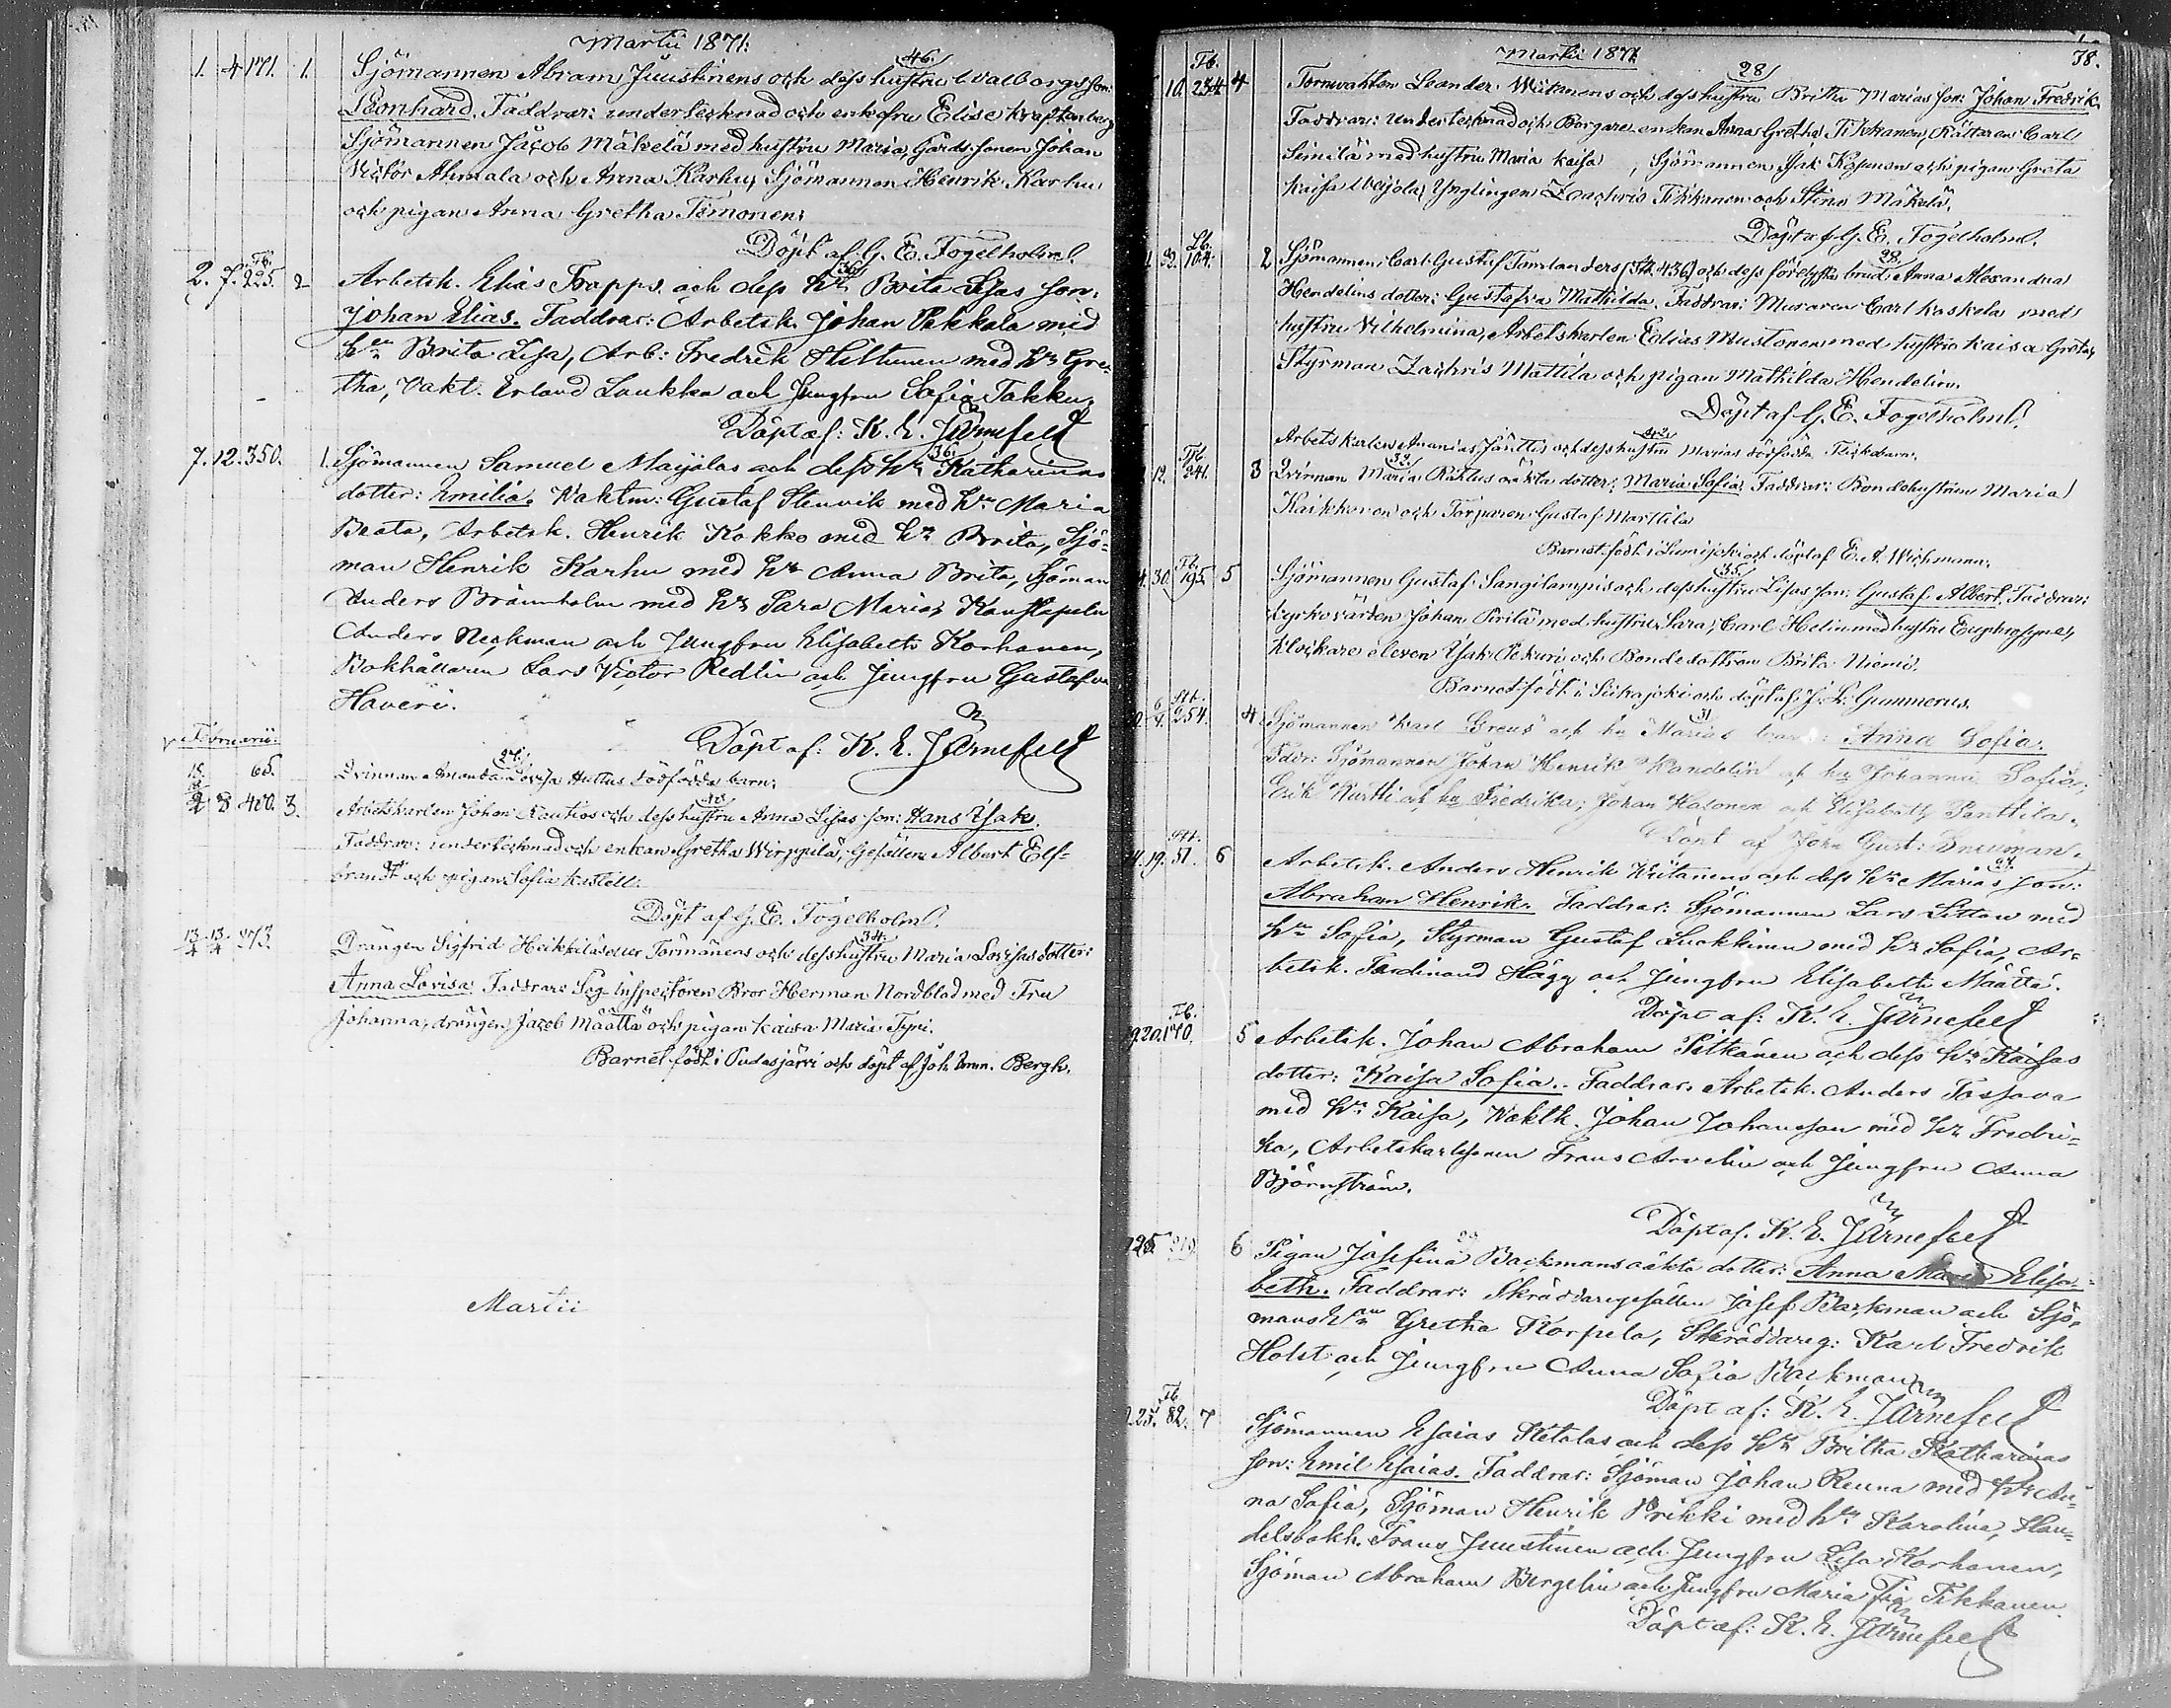 Martii 1871.
1. 4 171. 1. Sjömannen Abram Juustinens och dess hustru Walborgs son: 46.
Leonhard. Faddrar: undertecknad och enkefru Elise Kraftenberg
Sjömannen Jacob Mäkelä med hustru Maria, Gårds sonen Johan
Victor Ahmala och Anna Karhu, Sjömannen Henrik Karhu
och pigan Anna Gretha Timonen.
Döpt af G. E. Fogelholm.
2. 7. Tb. 225. 2 Arbetsk. Elias Trapps och dess hu Brita Lisas son: 36
Johan Elias. Faddrar: Arbetsk. Johan Pakkala med
hu Brita Lisa, Arb: Fredrik Hiltunen med hu Gre-
tha, Vakt. Erland Laukka och Jungfru Sofia Takku.
Döpt af: K. E. Järnefelt
7. 12. 350. 1. Sjömannen Samuel Maijalas och dess hu Katharinas 36
dotter: Emilia. Vaktm: Gustaf Stenvik med hu Maria
Beata, Arbetsk. Henrik Kokko med hu Brita, Sjö-
man Henrik Karhu med hu Anna Brita, Sjöman
Anders Brännholm med hu Sara Maria,
Anders Neckman och Jungfru Elisabeth Korhonen,
Bokhållaren Lars Victor Redlin och Jungfru Gustafva
Haveri.
Döpt af: K. E. Järnefelt
Februarii:
18. 65. Qvinnan Amanda Lovisa Huttus dödfödda barn. 27.
2 8 400. 3. Arbetskarlen Johan Rautios och dess hustru Anna Lisas son: Hans Isak.
Faddrar: undertecknad och enkan Gretha Wirppilä, Gesällen Albert Elf-
brandt och pigan Sofia Kastell.
Döpt af G. E. Fogelholm.
13/4 13/4 273 Drängen Sigfrid Heikkiläs eller Törmänens och dess hustru Maria Lovisas dotter: 34.
Anna Lovisa. Faddrar: Såg-Inspektoren Bror Herman Nordblad med Fru
Johanna, drängen Jacob Määttä och pigan Kaisa Maria Tyni.
Barnet födt i Pudasjärvi och döpt af Joh. Imm. Bergh.
Martii
Martii 1871
78.
10. Tb. 254 4 Tornvakten Leander Wiitanens och dess hustru Britha Marias son: Johan Fredrik. 28
Faddrar: undertecknad och Borgare enkan Anna Gretha Tikkanen, Rättaren Carl
Seinilä med hustru Maria Kaisa, Sjömannen Isak Kopsunen och pigan Greta
Kaisa Weijola, Ynglingen Zachris Tikkanen och Stina Mäkelä.
Döpt af G. E. Fogelholm.
22. Lb. 104. 2 Sjömannen Carl Gustaf Tamlanders (Stt. 436) och dess förlofvade brud Anna Alexandra 28.
Hendelins dotter: Gustafva Mathilda. Faddrar: Muraren Carl Kaskela med
hustru Vilhelmina, Arbetskarlen Edias Mustonen med hustru Kaisa Greta,
Styrman Zachris Mattila och pigan Mathilda Hendelin.
Döpt af G. E. Fogelholm.
Arbetskarlen Ananias Jänttis och dess hustru Marias dödfödda flickebarn. 42
12. Tb. 241. 3 Qvinnan Maria Räihäs oäkta dotter: Maria Sofia. Faddrar: Bondehustrun Maria
Kaikkonen och Torparen Gustaf Marttila
Barnet födt i Limijoki och döpt af E. A. Wichmann.
4. 30. Tb. 195. 5 Sjömannen Gustaf Sangilampis och dess hustru Lisas son: Gustaf Albert. Faddrar: 35.
Kyrkovärden Johan Pirilä med hustru Sara, Carl Helin med hustru Euphrosyne,
Klockare eleven Isak Pekuri och Bondedottren Brita Niemi.
Barnet födt i Siikajoki och döpt af J. L. Gummerus.
Stt. 254. 4 Sjömannen Karl Greus och hu Marias barn: Anna Sofia. 31
Faddr: Sjömannen Johan Henrik Wandelin och hu Johanna Sofia;
Erik Kurtti och hu Fredrika; Johan Kasonen och Elisabeth Panttila.
Döpt af John Gust: Snellman.
19. Stt. 51. 6 Arbetsk. Anders Henrik Wiitanens och dess hu Marias son: 27.
Abraham Henrik. Faddrar: Sjömannen Lars Sittow med
hu Sofia, Styrman Gustaf Luokkinen med hu Sofia, Ar-
betsk. Ferdinand Hägg och Jungfru Elisabeth Määttä.
Döpt af: K. E. Järnefelt
19. 20. Tb. 170. 5 Arbetsk. Johan Abraham Pitkänen och dess hu Kaisas
dotter: Kaisa Sofia. Faddrar: Arbetsk. Anders Tossava
med hu Kaisa, Vaktk. Johan Johansson med hu Fredri-
ka, Arbetskarlsonen Frans Arvelin och Jungfru Anna
Björnström.
Döpt af. K. E. Järnefelt
25 210. 6 Pigan Josefina Backmans oäkta dotter: Anna Maria Elisa- 29
beth. Faddrar: Skräddaregesällen Josef Backman och Sjö-
mans hu Gretha Korpela, Skräddareg: Karl Fredrik
Holst och Jungfru Anna Sofia Backman.
Döpt af: K. E. Järnefelt
25. Tb 82. 7 Sjömannen Esaias Hetalas och dess hu Britha Katharinas
son: Emil Esaias. Faddrar: Sjöman Johan Renna med hu An-
na Sofia, Sjöman Henrik Prikki med hu Karolina, Han-
delsbokh. Frans Juustinen och Jungfru Lisa Korhonen,
Sjöman Abraham Bergelin och Jungfru Maria Fia Tikkanen.
Döpt af: K. E. Järnefelt